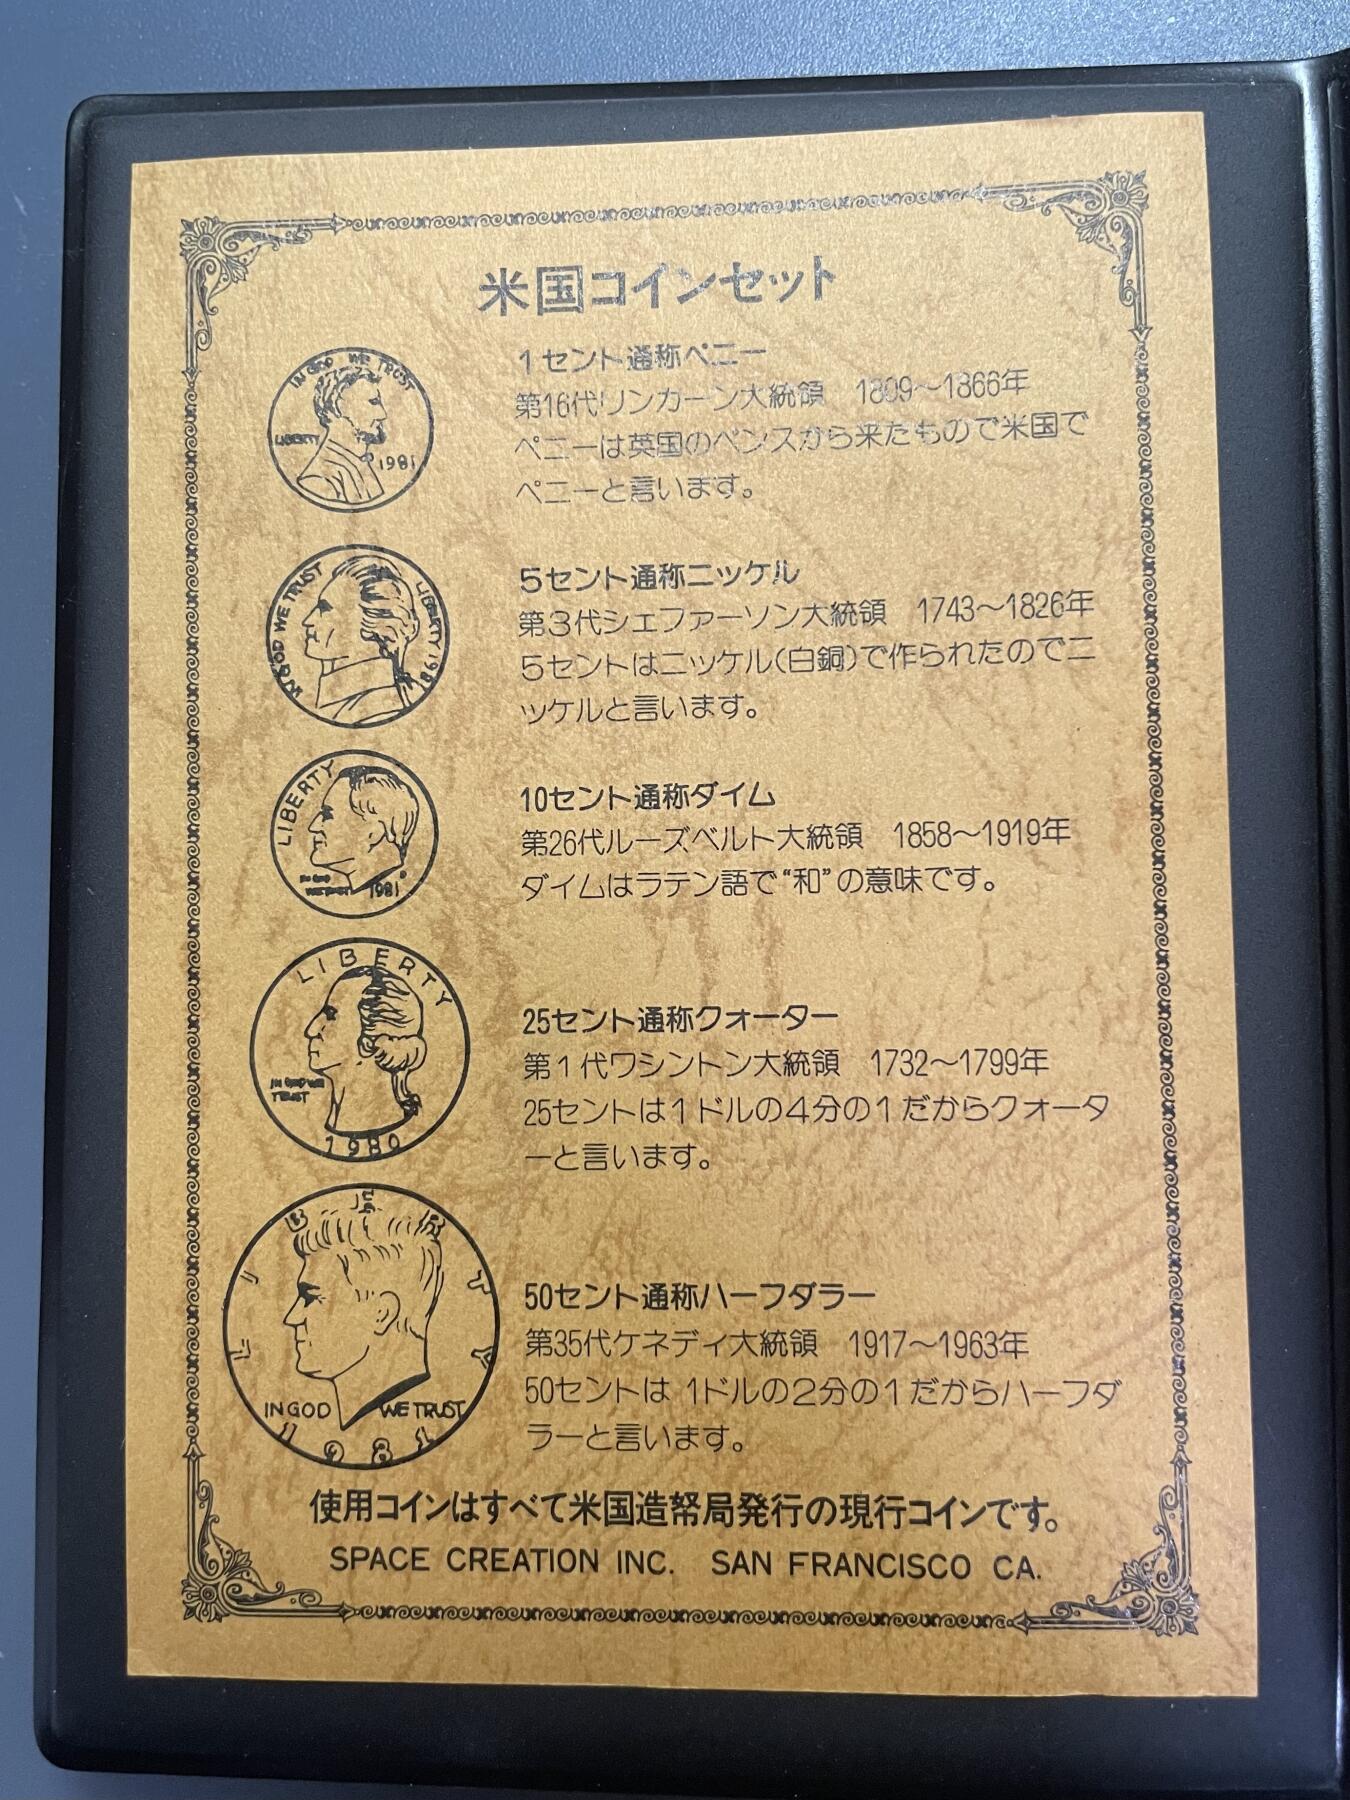 米国コインセット
IN GOD WE TRUST
LIBERTY
1981
1セント通称ペニー
第16代リンカーン大統領 1809〜1866年
ペニーは英国のペンスから来たもので米国で
ペニーと言います。
IN GOD WE TRUST
LIBERTY 1981
5セント通称ニッケル
第3代シェファーソン大統領 1743〜1826年
5セントはニッケル(白銅)で作られたのでニ
ッケルと言います。
LIBERTY
IN GOD
WE TRUST
1981
10セント通称ダイム
第26代ルーズベルト大統領 1858〜1919年
ダイムはラテン語で“和”の意味です。
LIBERTY
IN GOD WE
TRUST
1980
25セント通称クォーター
第1代ワシントン大統領 1732〜1799年
25セントは1ドルの4分の1だからクォータ
ーと言います。
IN GOD WE TRUST
1981
50セント通称ハーフダラー
第35代ケネディ大統領 1917〜1963年
50セントは 1ドルの2分の1だからハーフダ
ラーと言います。
使用コインはすべて米国造幣局発行の現行コインです。
SPACE CREATION INC. SAN FRANCISCO CA.